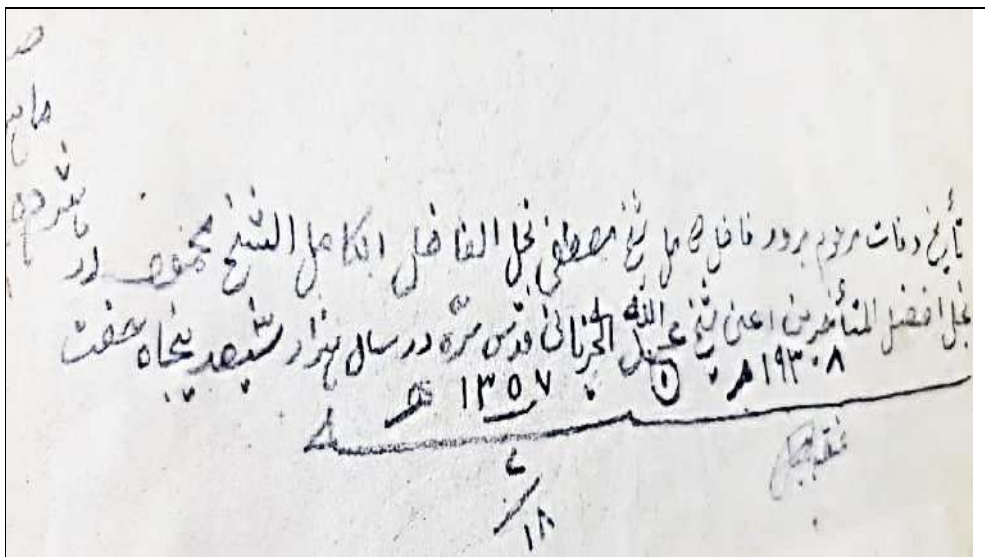 تأریخ وفات مرحوم برور فاضل کامل شیخ مصطفی نجل الفاضل الکامل الشیخ محمود
نجل افضل المتأخرین اعنی شیخ عبدالله الخرپانی قدس سره در سال هزار سیصد پنجاه هفت
١٣٥٧ هـ
١٩٣٠٨
٧
١٨